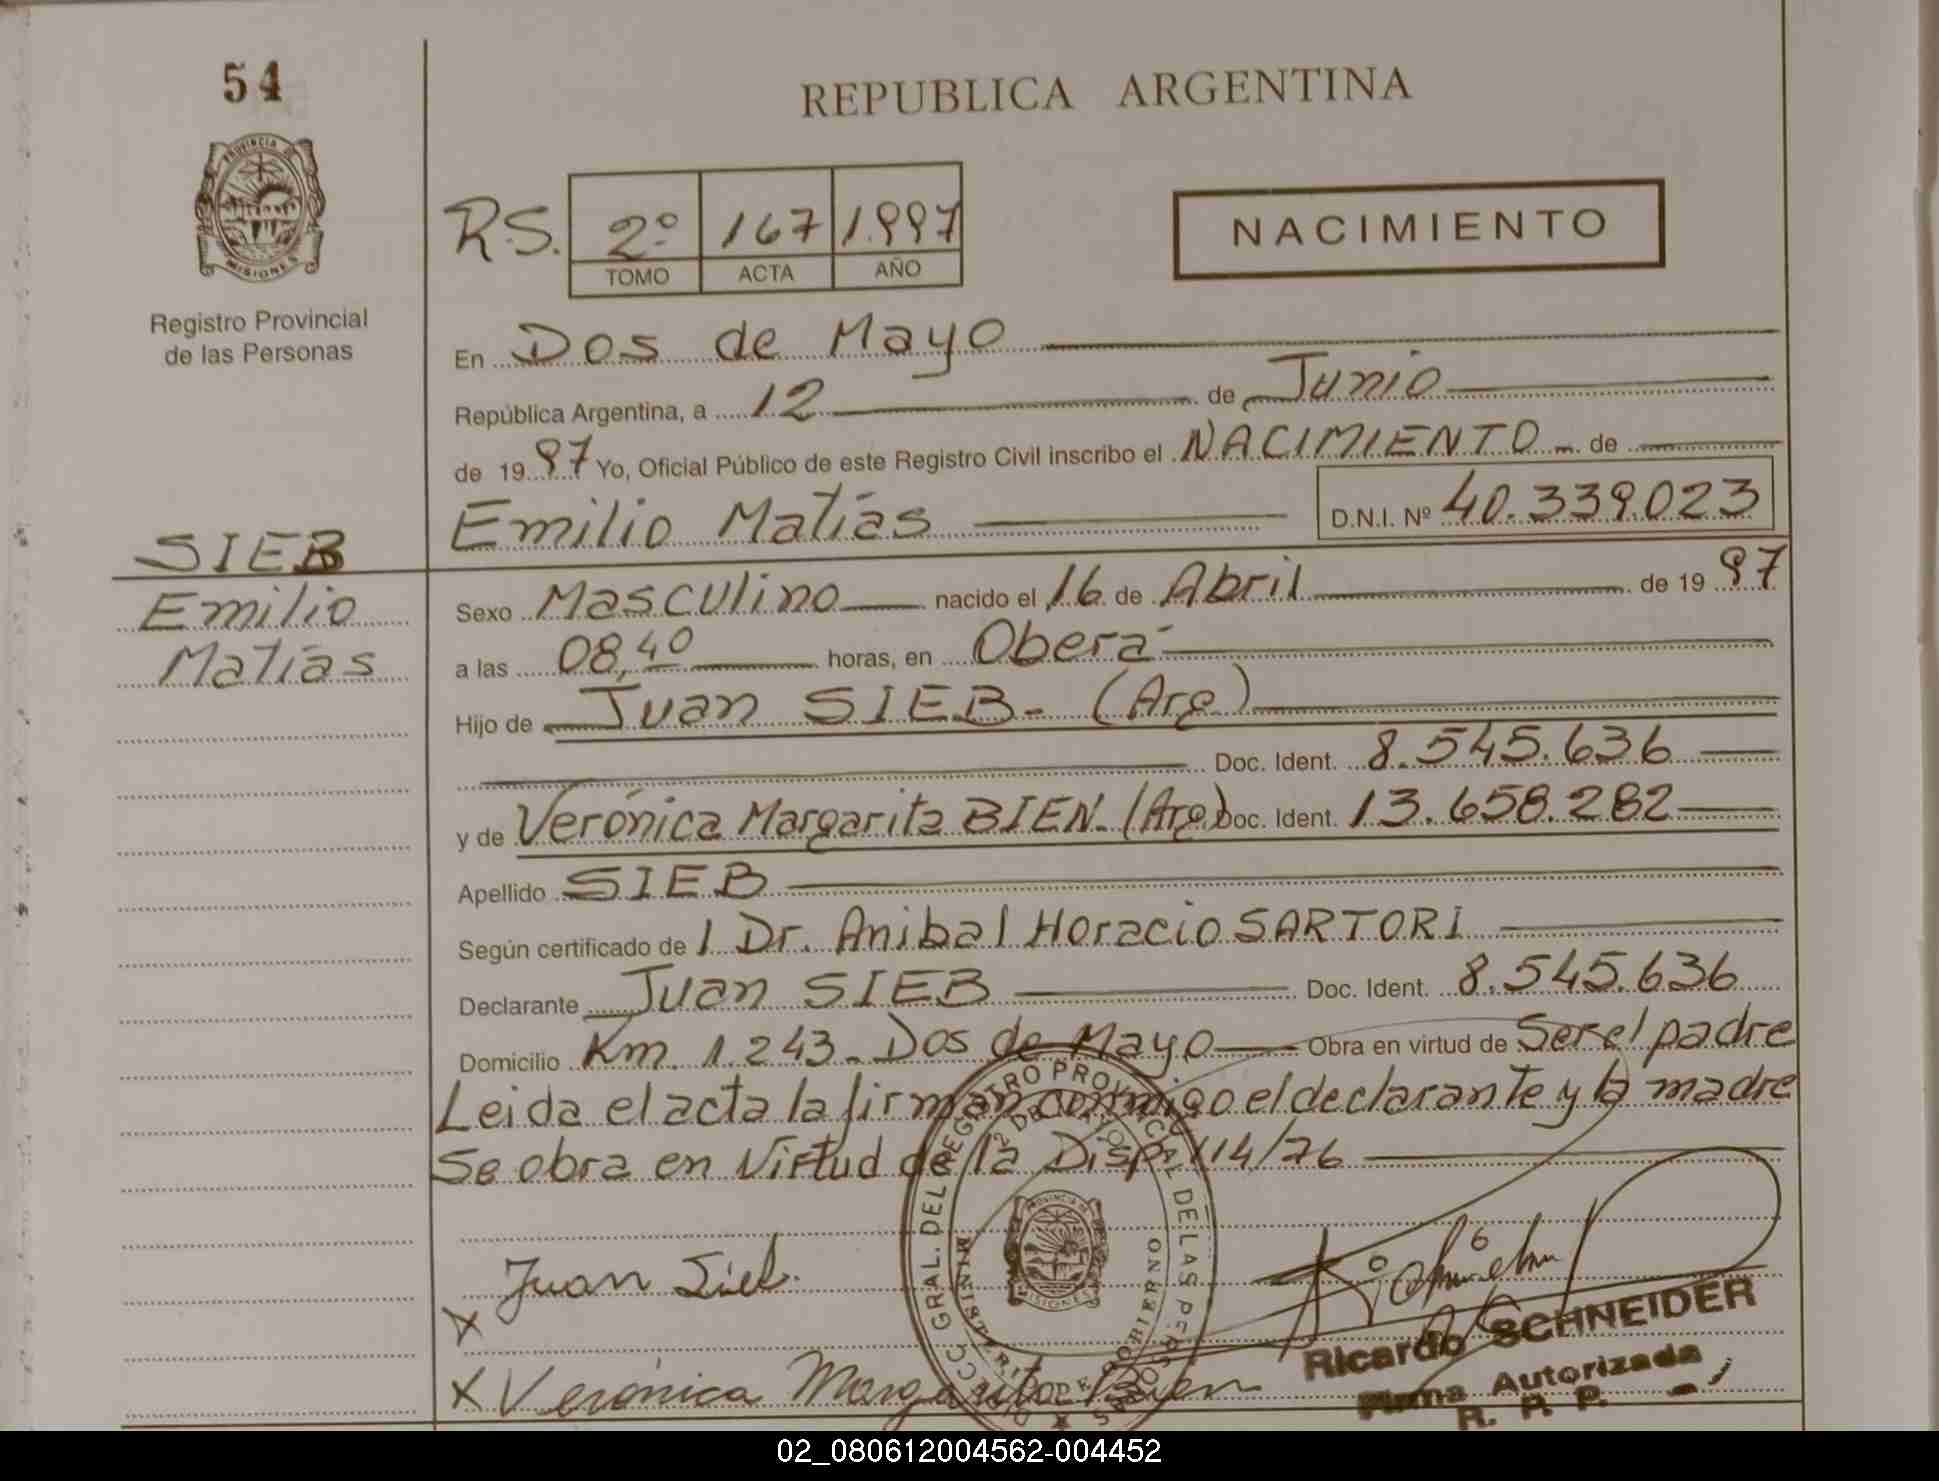 54
REPUBLICA ARGENTINA
PROVINCIA DE
MISIONES
Registro Provincial
de las Personas
R.S. 2º 167 1.997
TOMO ACTA AÑO
NACIMIENTO
En Dos de Mayo
República Argentina, a 12 de Junio
de 19 97 Yo, Oficial Público de este Registro Civil inscribo el NACIMIENTO de
Emilio Matías D.N.I. Nº 40.339.023
SIEB
Emilio
Matías
Sexo Masculino nacido el 16 de Abril de 19 97
a las 08,40 horas, en Oberá
Hijo de Juan SIEB- (Arg)
Doc. Ident. 8.545.636
y de Verónica Margarita BIEN. (Arg) Doc. Ident. 13.658.282
Apellido SIEB
Según certificado de 1 Dr. Anibal Horacio SARTORI
Declarante Juan SIEB Doc. Ident. 8.545.636
Domicilio Km. 1.243- Dos de Mayo Obra en virtud de Ser el padre
Leida el acta la firman conmigo el declarante y la madre
Se obra en Virtud de la Disp. 114/76
DIRECC. GRAL. DEL REGISTRO PROVINCIAL DE LAS PERSONAS
2 DE MAYO
MINISTERIO DE GOBIERNO
PROVINCIA DE
MISIONES
Juan Sieb.
X
Ricardo SCHNEIDER
Firma Autorizada
R. P. P.
X Verónica Margarita Bien
02_080612004562-004452